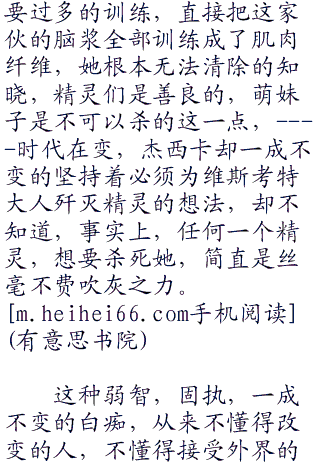 要过多的训练，直接把这家
伙的脑浆全部训练成了肌肉
纤维，她根本无法清除的知
晓，精灵们是善良的，萌妹
子是不可以杀的这一点，---
-时代在变，杰西卡却一成不
变的坚持着必须为维斯考特
大人歼灭精灵的想法，却不
知道，事实上，任何一个精
灵，想要杀死她，简直是丝
毫不费吹灰之力。
[m.heihei66.com手机阅读]
(有意思书院)
这种弱智，固执，一成
不变的白痴，从来不懂得改
变的人，不懂得接受外界的